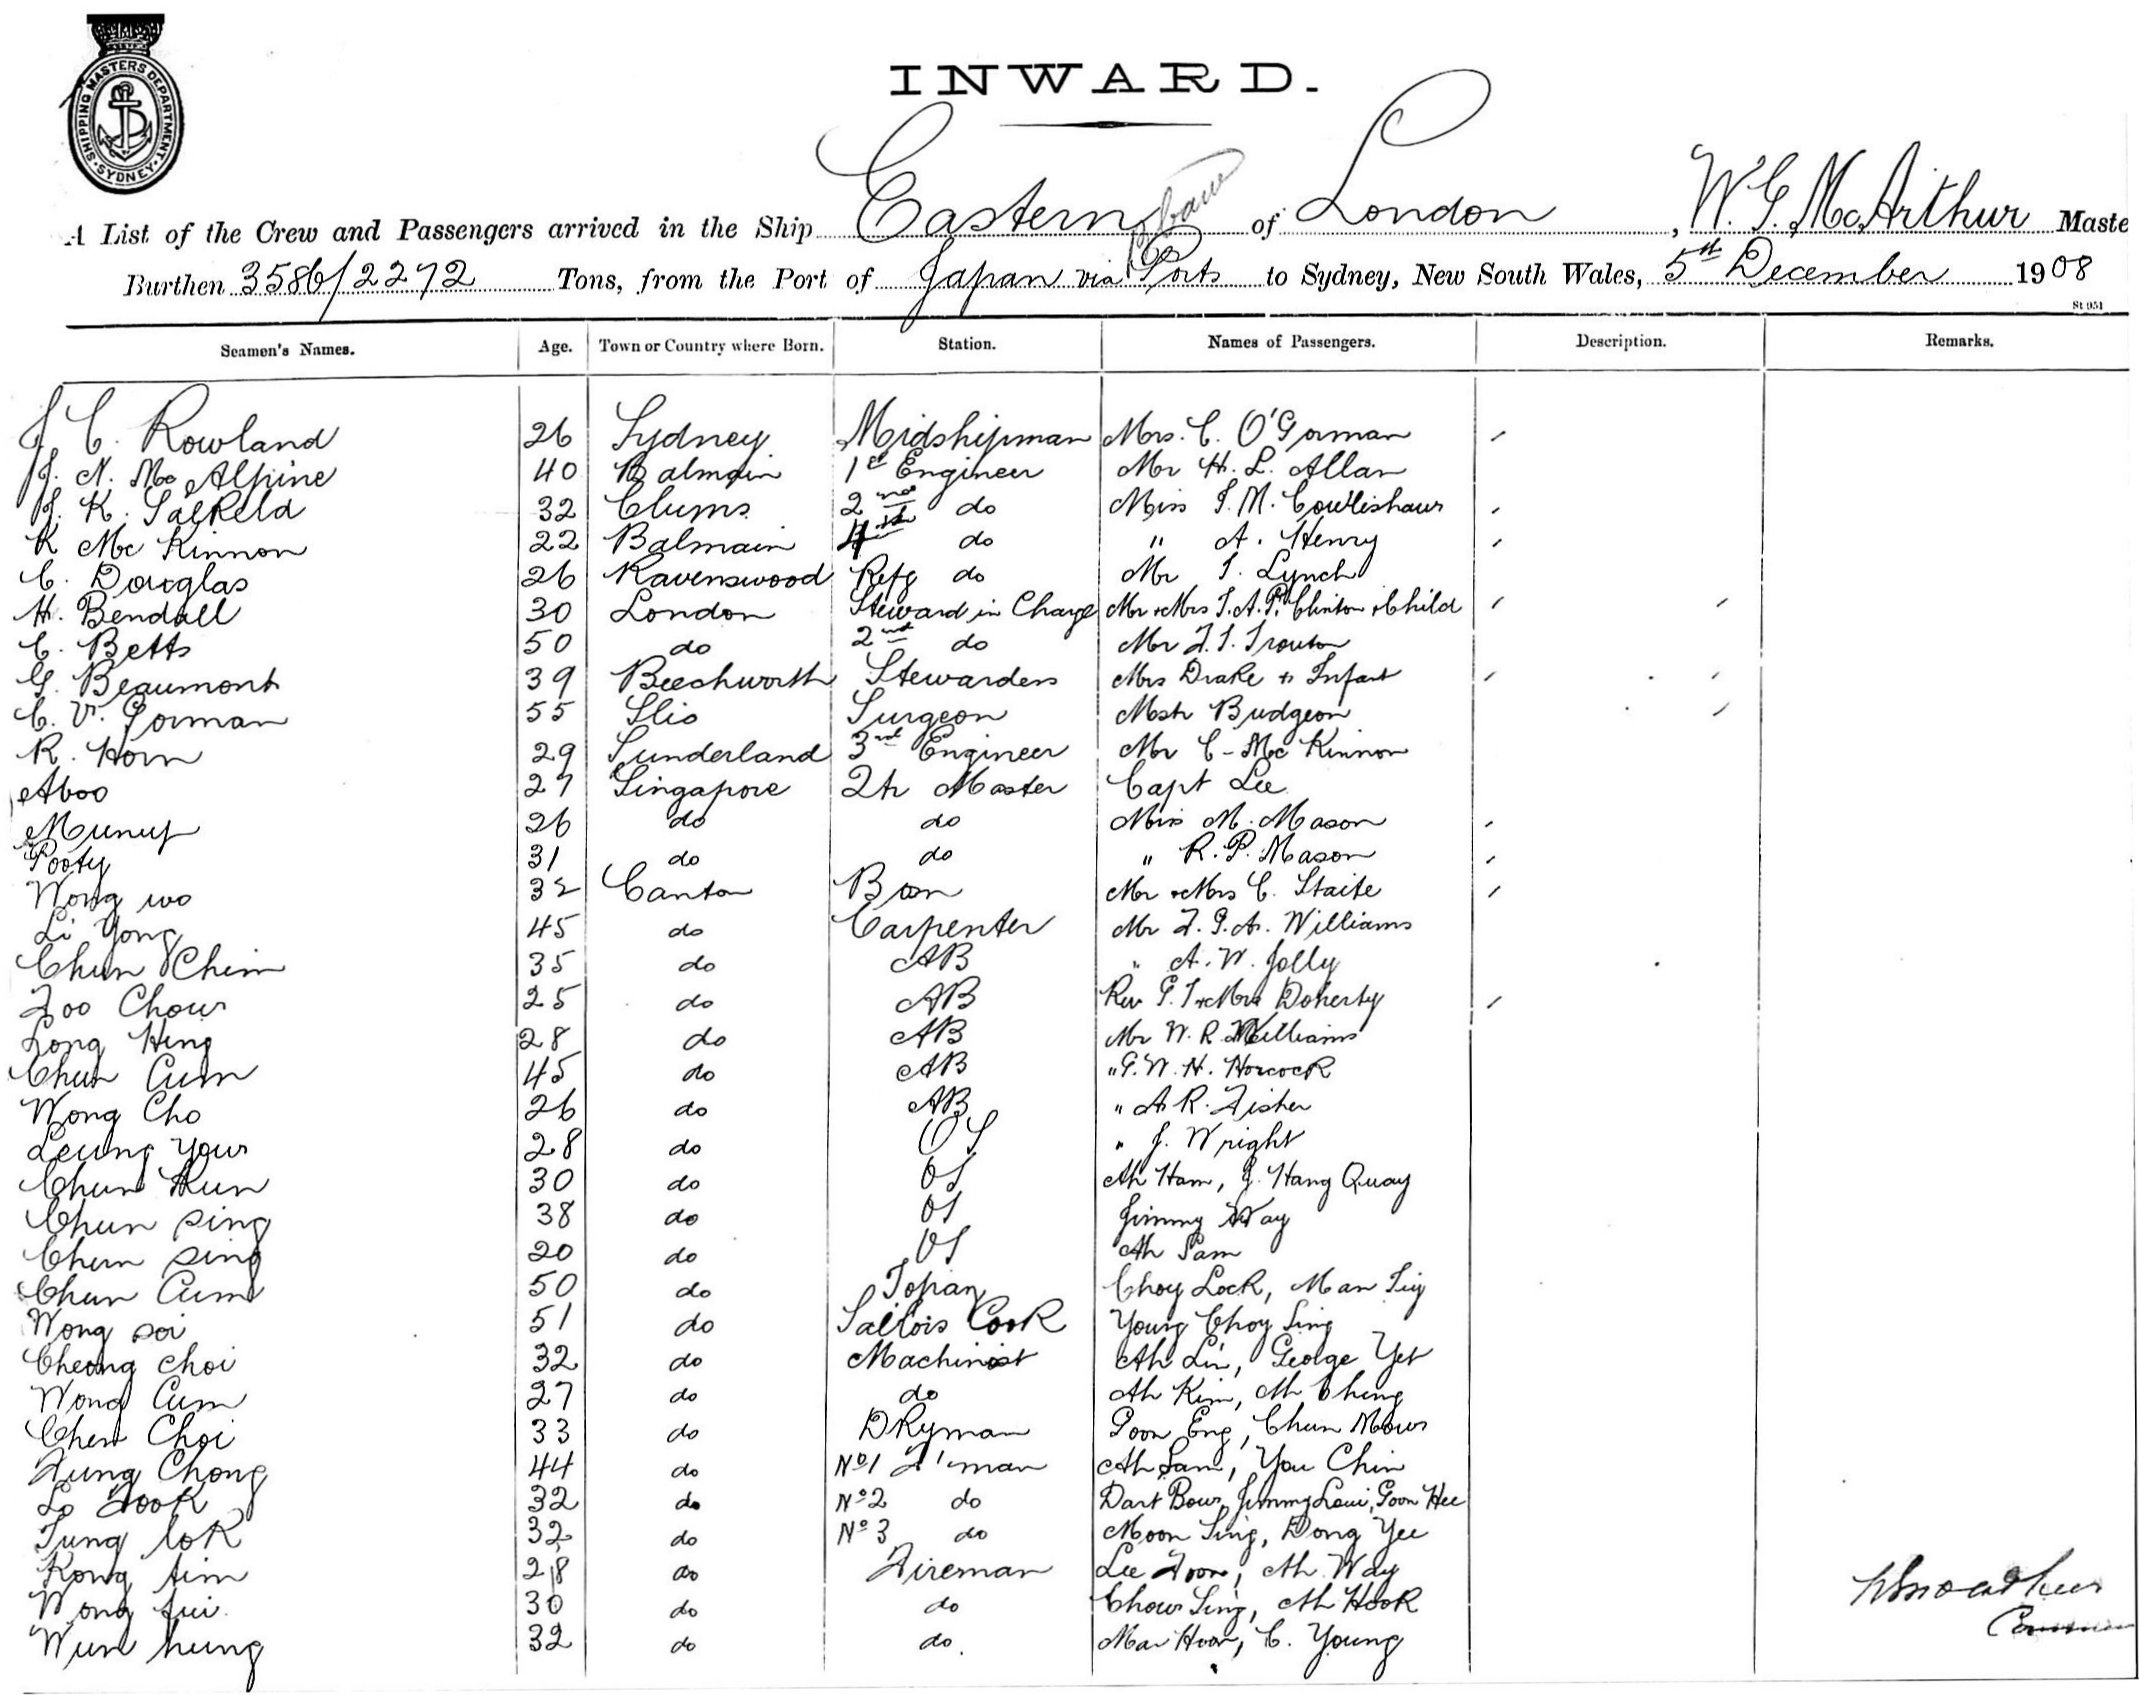 SHIPPING MASTERS DEPARTMENT. SYDNEY.
INWARD.
A List of the Crew and Passengers arrived in the Ship Eastern of London, W. G. McArthur Maste
Burthen 3586/2272 Tons, from the Port of Japan via Ports to Sydney, New South Wales, 5th December 1908
St 951
Seamen's Names. Age. Town or Country where Born. Station. Names of Passengers. Description. Remarks.
J C. Rowland 26 Sydney Midshipman Mrs. C. O'Gorman
J. N. Mc Alpine 40 Balmain 1st Engineer Mr H. L. Allan
J. K. Salkeld 32 Clums 2nd do Miss J. M. Cowlishaw
R Mc Kinnon 22 Balmain 4th do " A. Henry
C. Douglas 26 Ravenswood Refg do Mr J. Lynch
H. Bendall 30 London Steward in Charge Mr & Mrs J. A. P. Clinton & Child
C. Betts 50 do 2nd do Mr F. J. Trouton
G. Beaumont 39 Beechworth Stewardess Mrs Drake & Infant
C. V. Gorman 55 Slio Surgeon Mstr Budgeon
R. Horn 29 Sunderland 3rd Engineer Mr C- Mc Kinnon
Aboo 27 Singapore Qtr Master Capt Lee
26 do do Miss M. Mason
Pooty 31 do do " R. P. Mason
Wong wo 32 Canton Bosn Mr & Mrs C. Staite
Li Yong 45 do Carpenter Mr F. G. A. Williams
Chun Chim 35 do AB " A. W. Jolly
Foo Chow 25 do AB Rev G. T & Mrs Doherty
Long Hing 28 do AB Mr W. R. Williams
Chun Cum 45 do AB " G. W. H. Horcock
Wong Cho 26 do AB " A R. Fisher
Leung Yow 28 do OS " J. Wright
Chun Kun 30 do OS Ah Ham, J. Hang Quay
Chun sing 38 do OS Jimmy Way
Chun sing 20 do OS Ah Sam
Chun Cum 50 do Topan Choy Lock, Man
Wong soi 51 do Sailors Cook Young Choy Sing
Cheong choi 32 do Machinist Ah Lin, George Yet
Wong Cum 27 do do Ah Kim, Ah Ching
Chen Choi 33 do DKyman Goon Eng, Chun Mow
Fung Chong 44 do No1 F'man Ah Sam, You Chin
Lo Fook 32 do No2 do Dart Bow, Jimmy Loui, Goon Hee
Tung lok 32 do No3 do Moon Sing, Dong Yee
Kong tim 28 do Fireman Lee Foon, Ah Way
Wong tui 30 do do Chow Sing, Ah Hook
Wun hung 32 do do. Mar Hoon, C. Young